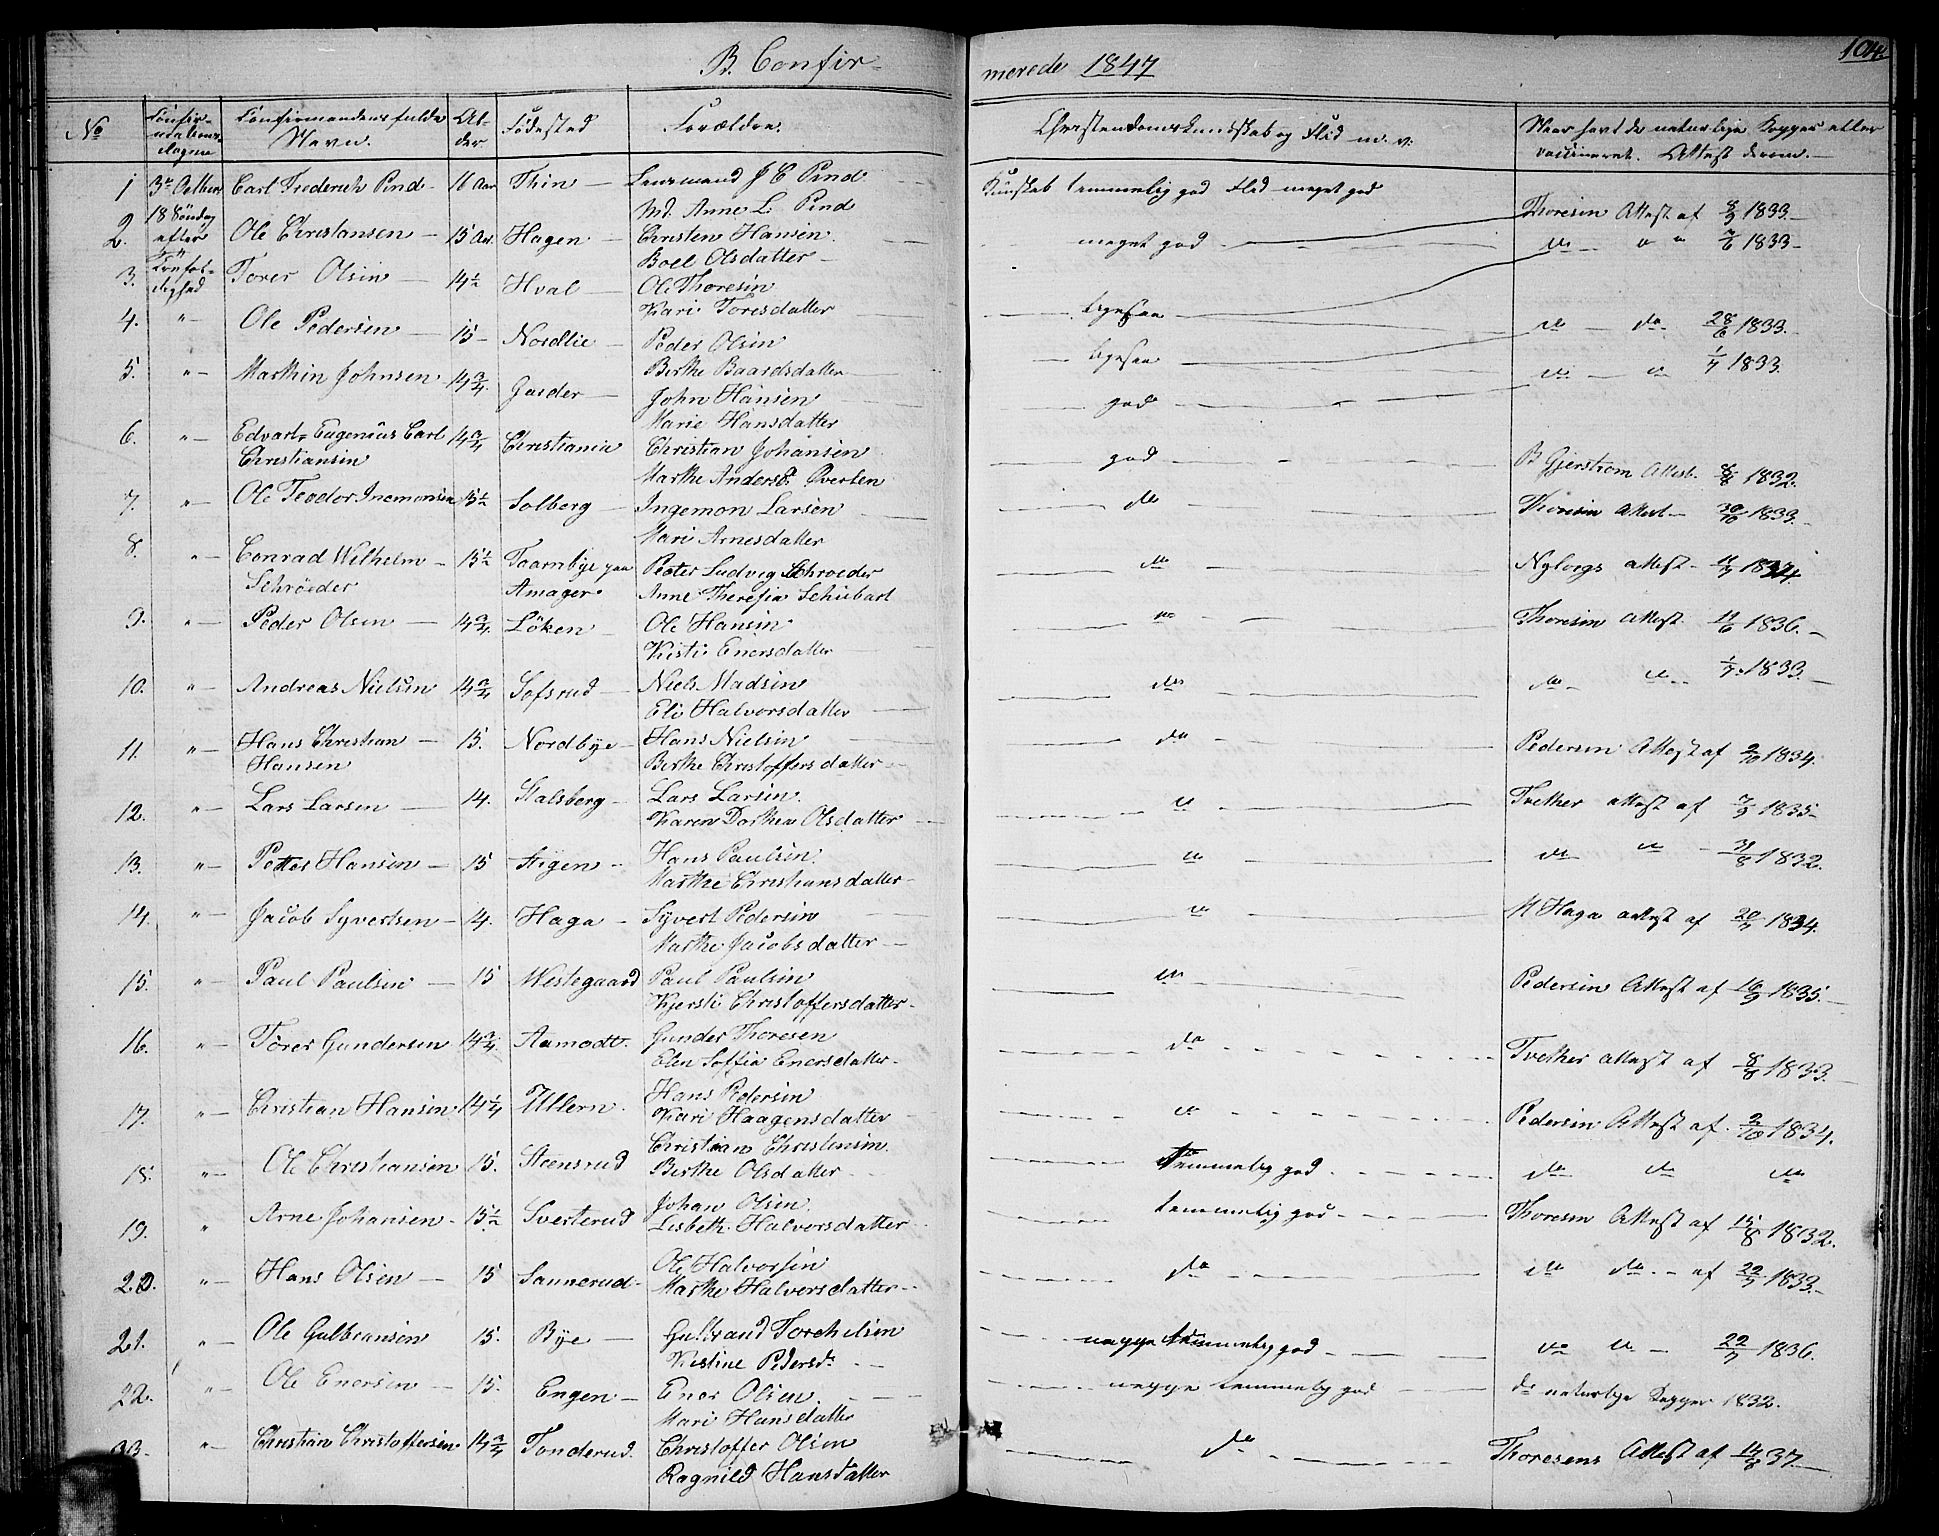 B. Confirmerede 1847
104.
No
Confirmationsdagen
Confirmandens fulde Navn.
Alder
Fødested
Forældre.
Christendoms Kundskab og Flid m. v.
Naar havt de naturlige Kopper eller vaccineret. Attest derom.
1 3die October Carl Frederich Pind 16 Aar Thin Lensmand J C Pind
Md. Anne L. Pind
Kundskab temmelig god Flid meget god Thoresen Attest af 8/9 1833
2. 18 Søndag efter Trefoldighed Ole Christansen 15 Aar Hagen Christen Hansen
Boel Olsdatter
meget god do 1833
3. Torer Olsen 14 1/2 Hval Ole Thoresen
Kari Toresdatter
ligesaa
4. " Ole Pedersen 15 Nordlie Peder Olsen
Berthe Baardsdatter
ligesaa do do 28/6 1833
5. " Marthin Johnsen 14 3/4 Garder John Hansen
Marie Hansdatter
god do 1/7 1833
6. " Edvart Eugenius Carl Christiansen 14 3/4 Christiania Christian Johansen
Marthe Andersd. Øverlen
god B Gjerstrom Attest. 8/8 1832.
7. " Ole Teodor Inemonsen 15 1/2 Solberg Ingemon Larsen
Mari Arnesdatter
do Thoresen Attest 30/10 1833
8. " Conrad Wilhelm Schröeder 15 1/2 Taarnbye paa Amager Peter Ludvig Schroeder
Anne Theresia Schubart
do Nyborgs attest 11/7 1834
9. " Peder Olsen 14 3/4 Löken Ole Hansen
Kisti Enersdatter
do Thoresen Attest 11/6 1836.
10. " Andreas Nielsen 14 3/4 Sofsrud Niels Madsen
Eli Halvorsdatter
do do 1/7 1833
11. " Hans Christian Hansen 15. Nordbye Hans Nielsen
Berthe Christoffersdatter
do Pedersen Attest af 2/10 1834.
12. " Lars Larsen 14. Stalsberg Lars Larsen
Karen Dorthea Olsdatter
do Tvether attest af 7/9 1835
13. " Petter Hansen 15 Stigen Hans Paulsen
Marthe Christiansdatter
do do 31/8 1832.
14. " Jacob Syvertsen 14. Haga Syvert Pedersen
Marthe Jacobsdatter
do H Haga attest af 20/7 1834.
15. " Paul Paulsen 15 Westegaard Paul Paulsen
Kjersti Christoffersdatter
do Pedersen Attest af 16/9 1835.
16. " Torer Gundersen 14 3/4 Aamodt. Gunder Thoresen
Elen Soffia Enersdatter
do Tvether attest af 8/8 1833
17. " Christian Hansen 14 1/4 Ullern. Hans Pedersen
Kari Haagensdatter
do Pedersen Attest af 2/10 1834.
18. " Ole Christiansen 15. Steensrud Christian Christensen.
Berthe Olsdatter
temmelig god do do do
19. " Arne Johansen 15 1/2 Sverterud Johan Olsen.
Lisbeth Halvorsdatter
temmelig god Thoresen Attest af 15/8 1832.
20. " Hans Olsen 15 Saunerud Ole Halvorsen
Marthe Halvorsdatter
do do do af 22/7 1833.
21. " Ole Gulbransen 15. Bye Gulbrand Torchelsen
Kistine Pedersd.
neppe temmelig god do 22/7 1836.
22. " Ole Enersen 15. Engen Ener Olsen.
Mari Hansdatter
neppe temmelig god do naturlige Kopper 1832.
23. " Christian Christoffersen 14 3/4 Tonderud Christoffer Olsen
Ragnild Hansdatter
do Thoresens Attest af 14/8 37.